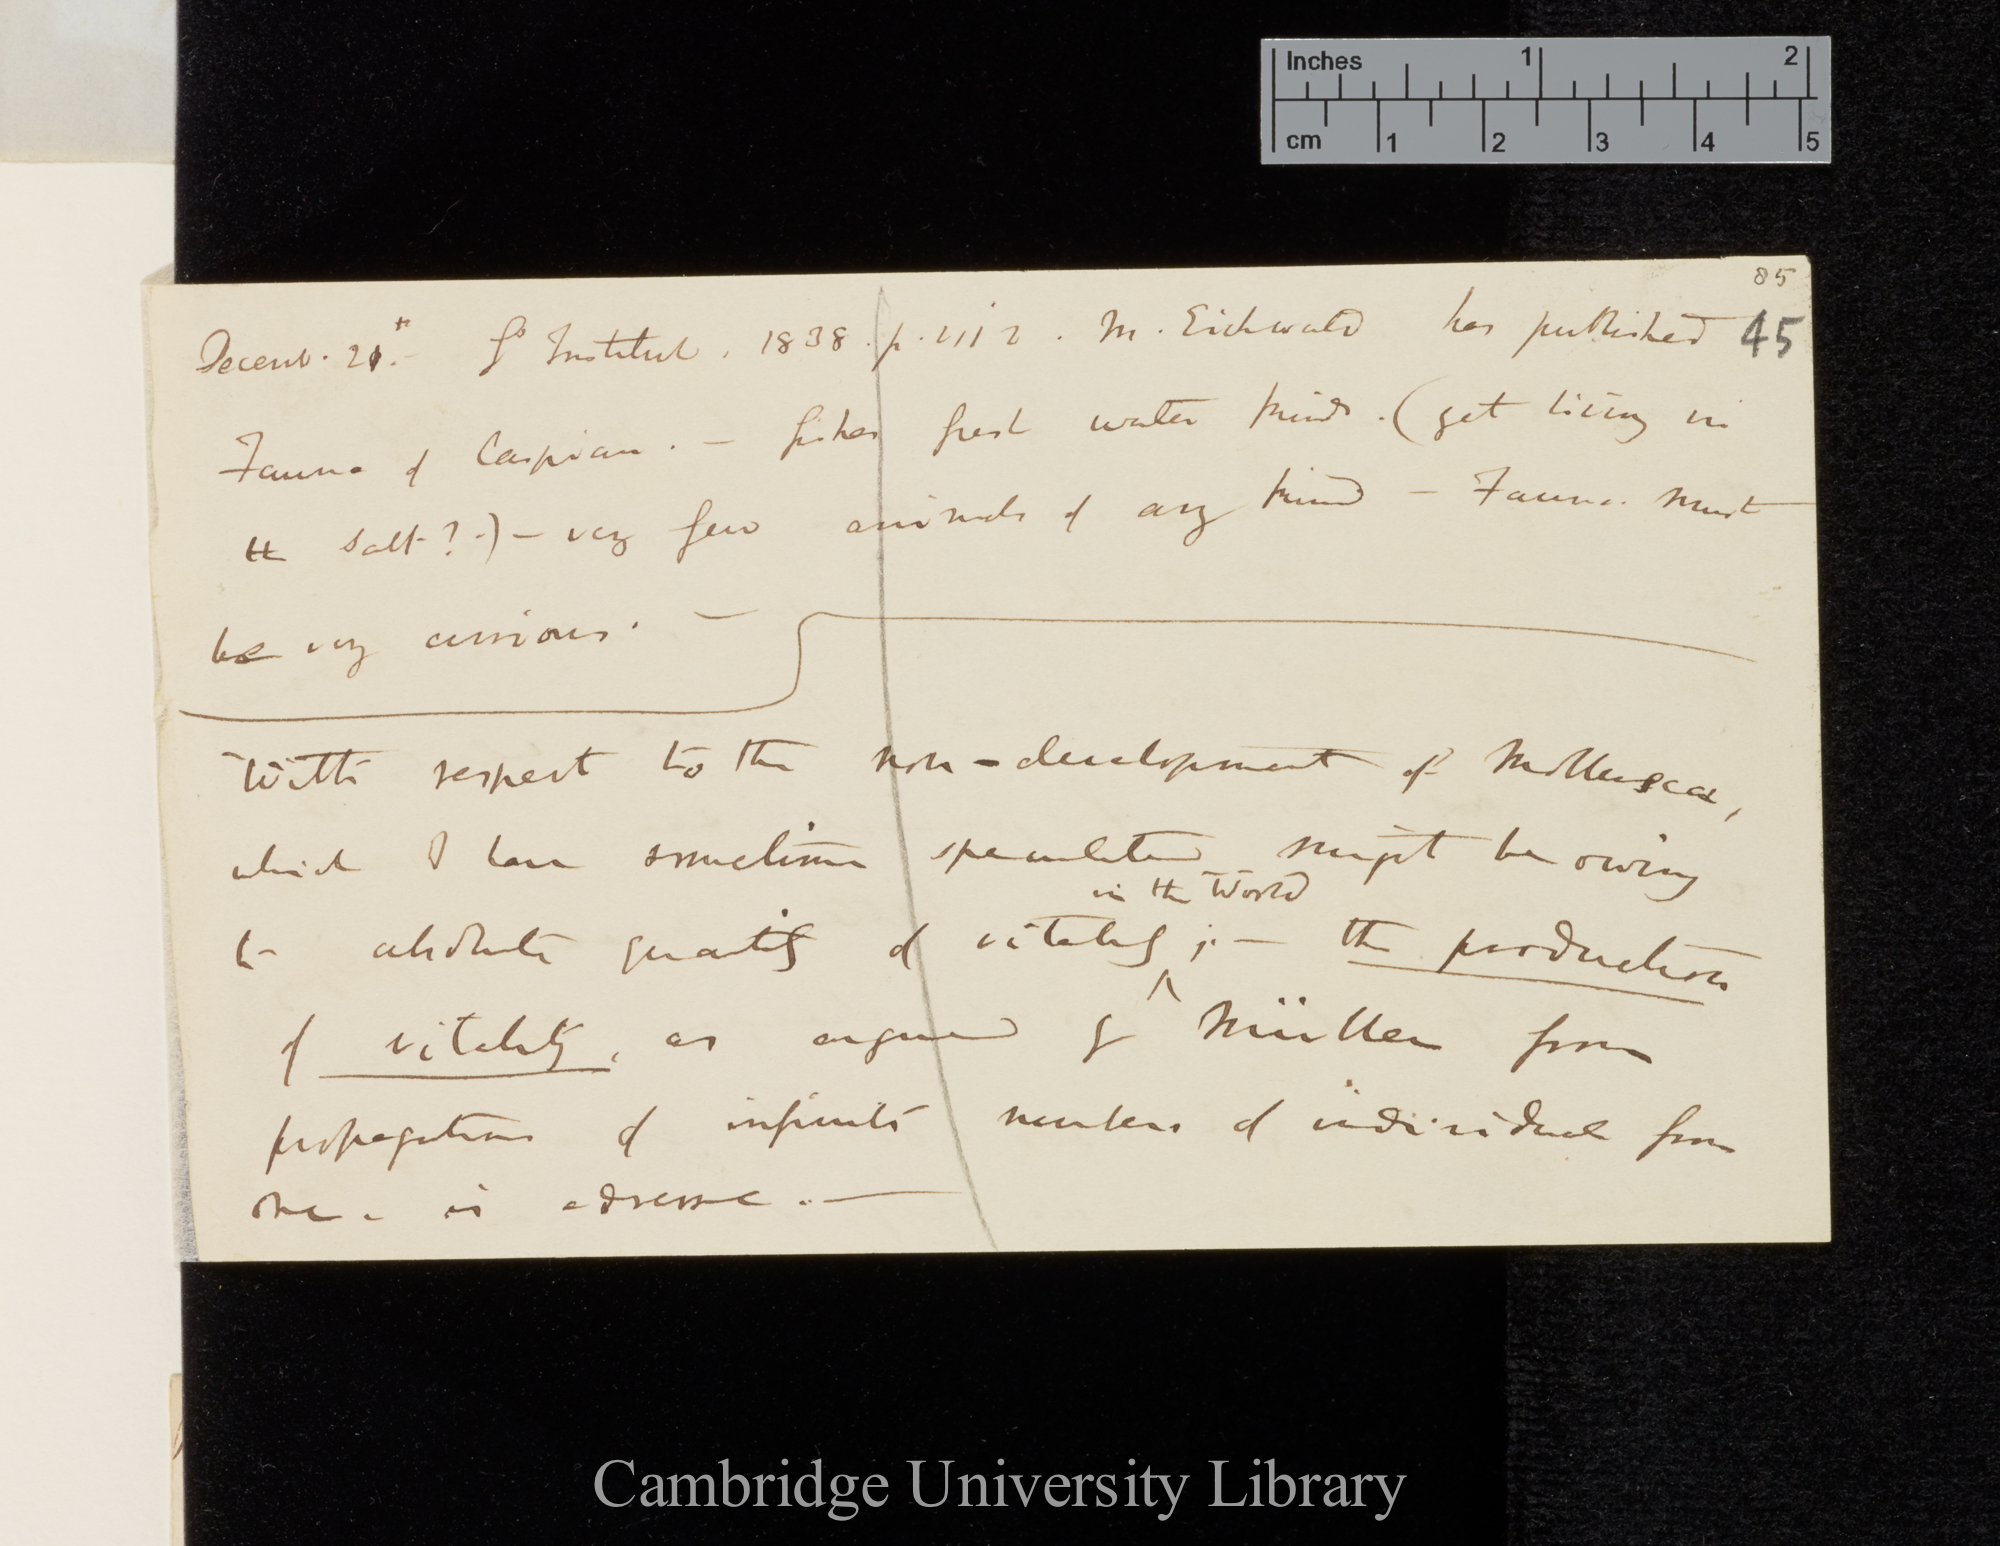 Inches 1 2
cm 1 2 3 4 5
85
Decemb. 21.th L'Institut. 1838. p. 412. M. Eichwald has published 45
Fauna of Caspian. — fishes fresh water kinds. (yet living in
the salt?.) — very few animals of any kind — Fauna must
be very curious. —
With respect to the non-development of Mollusca,
which I have sometime speculated might be owing
to absolute quantity of vitality in the World ;— the production
of vitality, as argued by Müller from
propagation of infinite numbers of individuals from
one. is adverse. —
Cambridge University Library